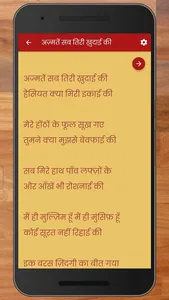 अज़मतें सब तिरी ख़ुदाई की
अज़्मतें सब तिरी ख़ुदाई की
हैसियत क्या मिरी इकाई की
मेरे होंठों के फूल सूख गए
तुमने क्या मुझसे बेवफाई की
सब मिरे हाथ पाँव लफ्ज़ों के
और आँखें भी रोशनाई की
में ही मुल्ज़िम हूँ में ही मुंसिफ़ हूँ
कोई सूरत नहीं रिहाई की
इक बरस ज़िंदगी का बीत गया